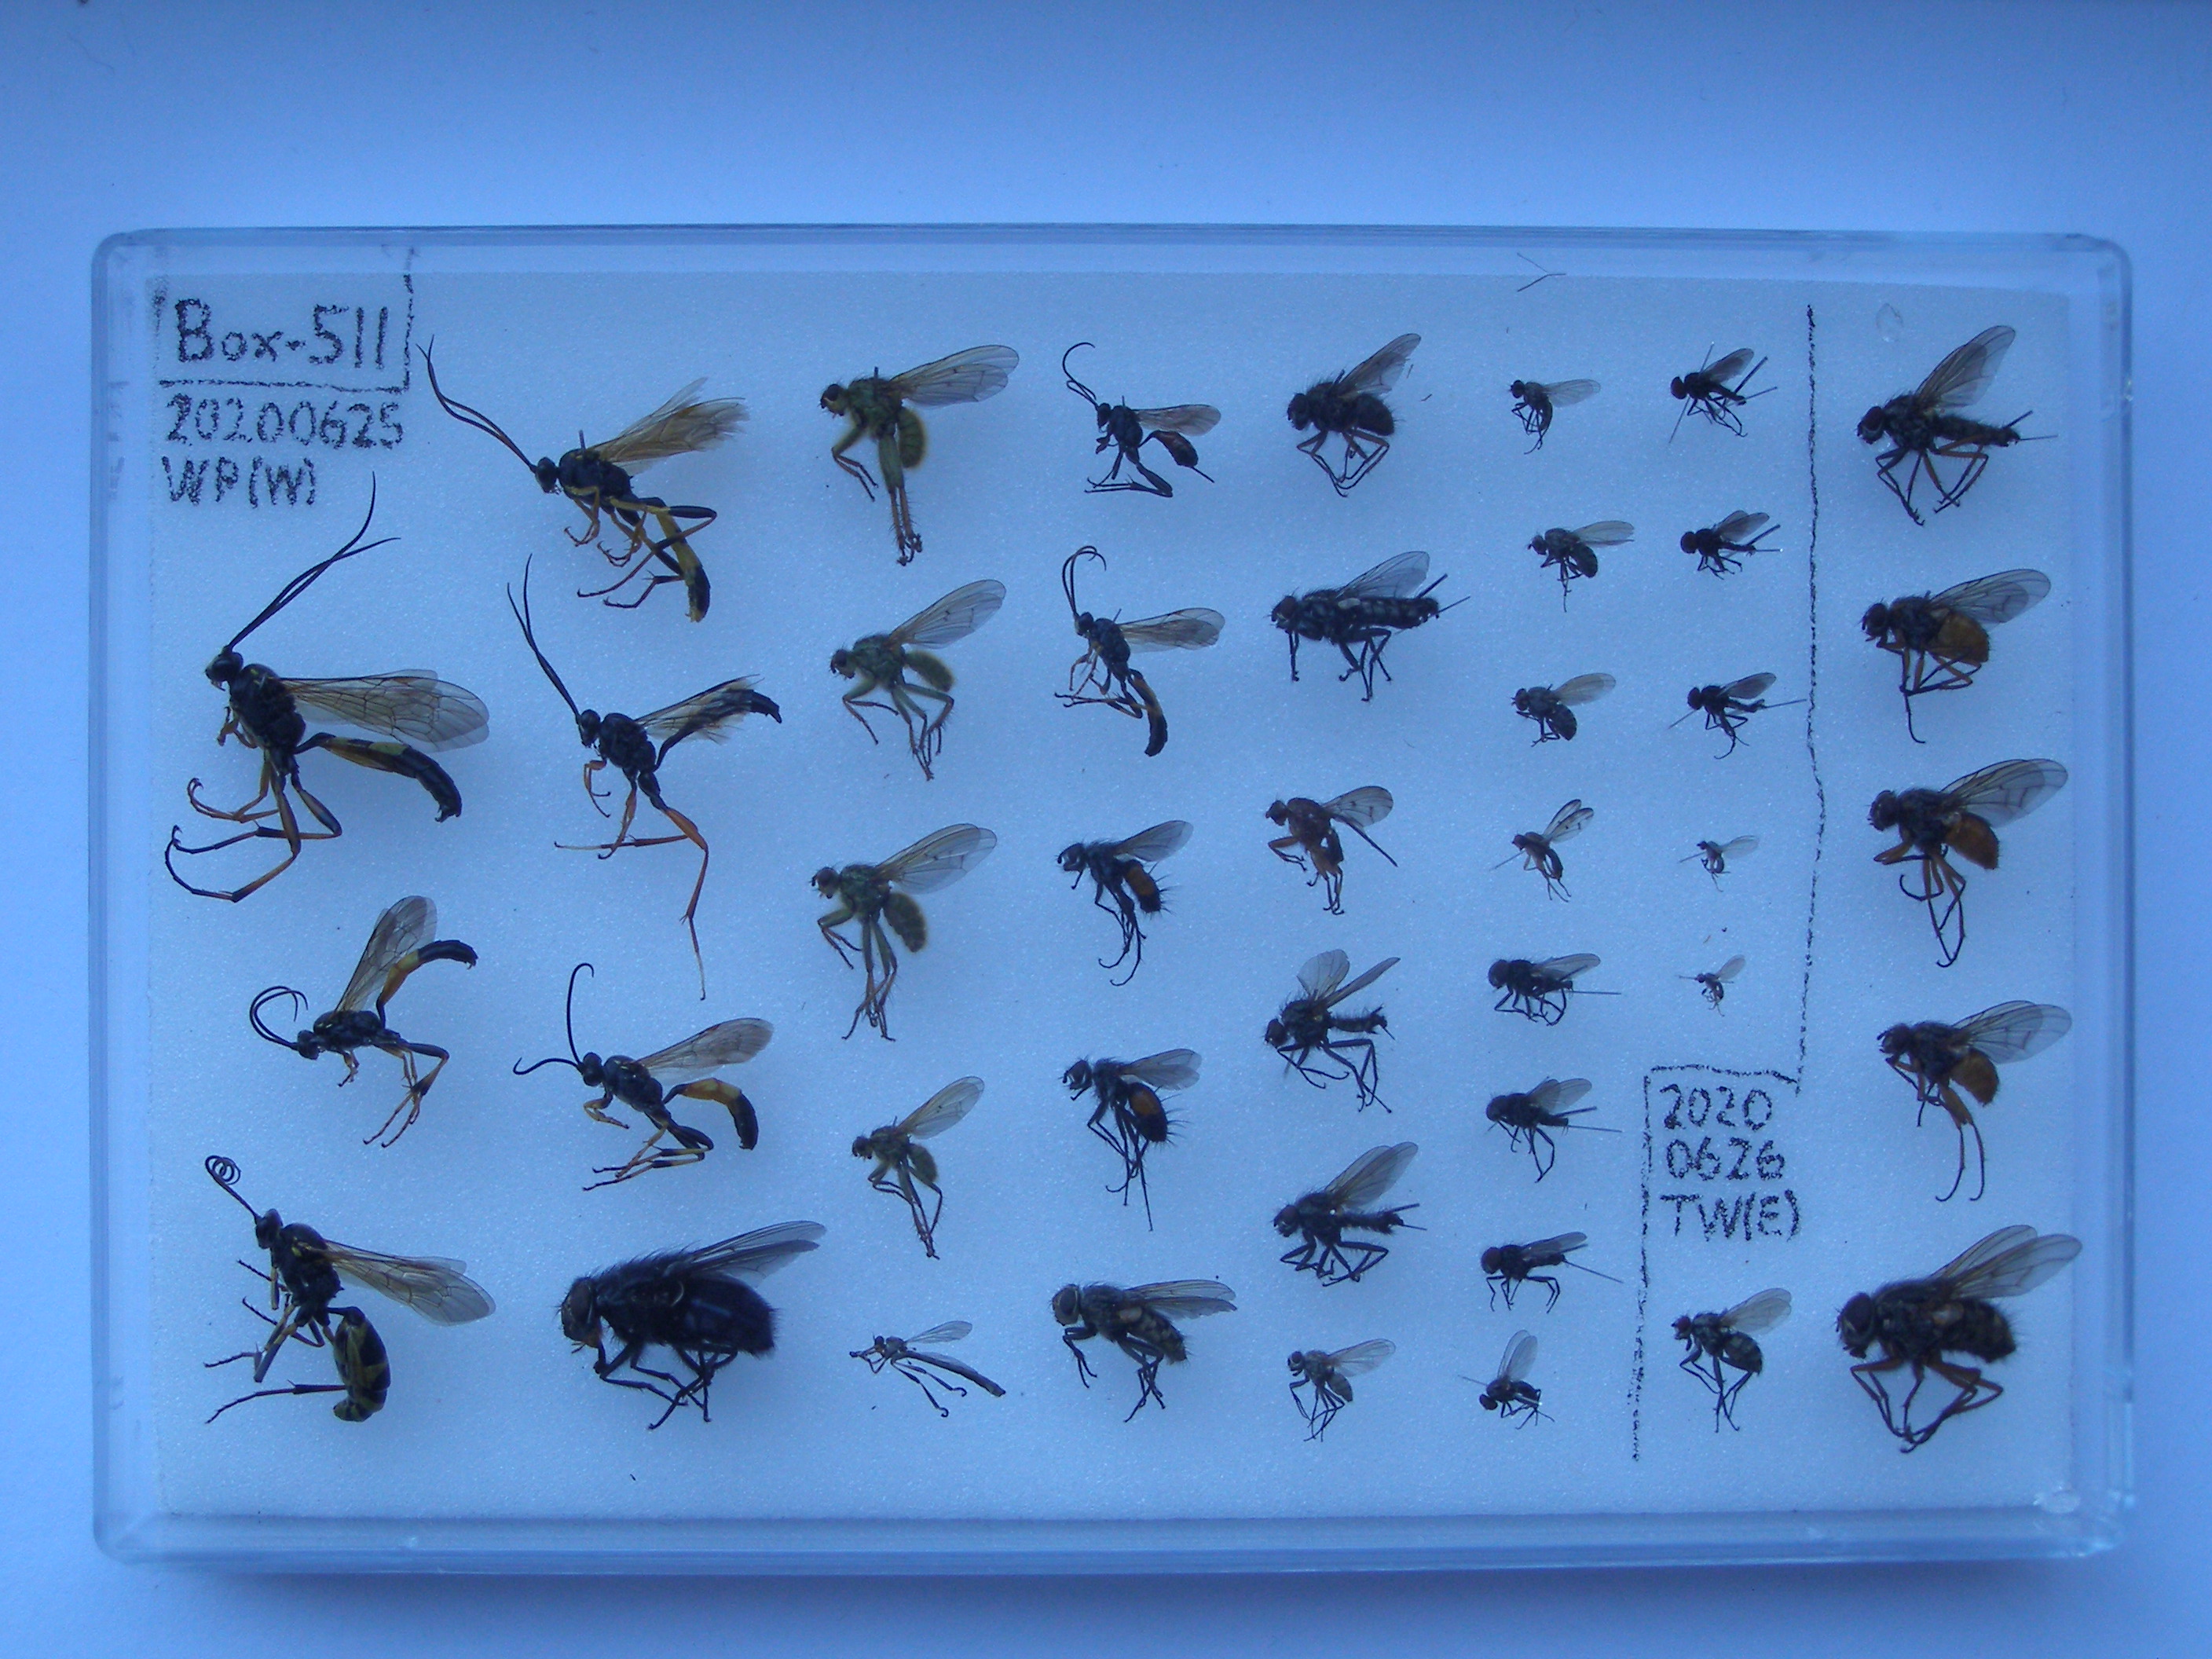 Box-511
20200625
WP(W)
2020
0626
TW(E)